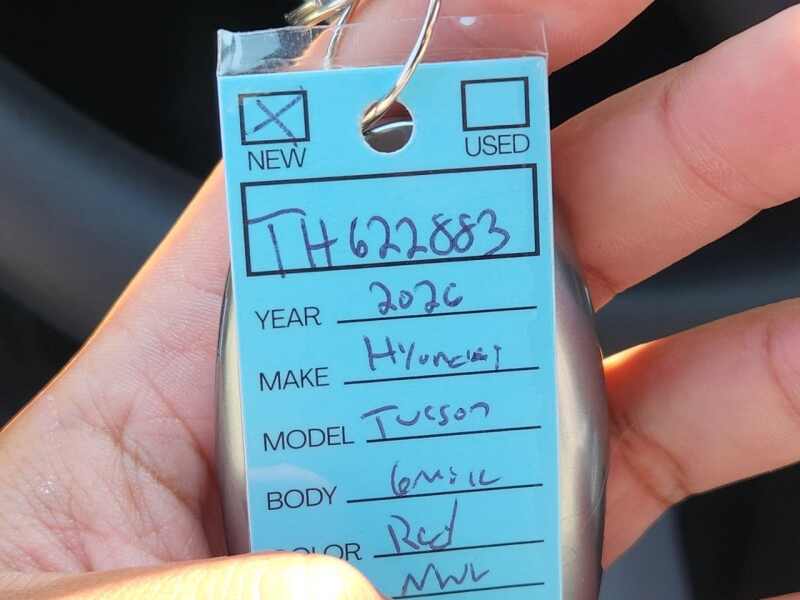 NEW USED
TH622883
YEAR 2026
MAKE Hyundai
MODEL Tucson
BODY
COLOR Red